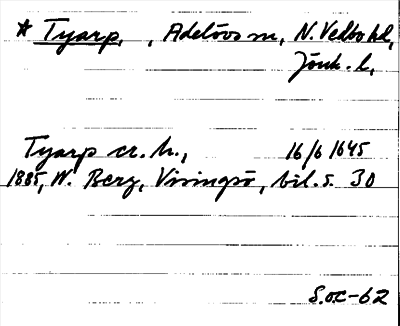 * Tyarp, , Adelövs sn, N. Vedbo hd,
Jönk. l,
Tyarp cr. h., 16/6 1645
1885, W. Berg, Visingsö, bil. s. 30
S.OC-62